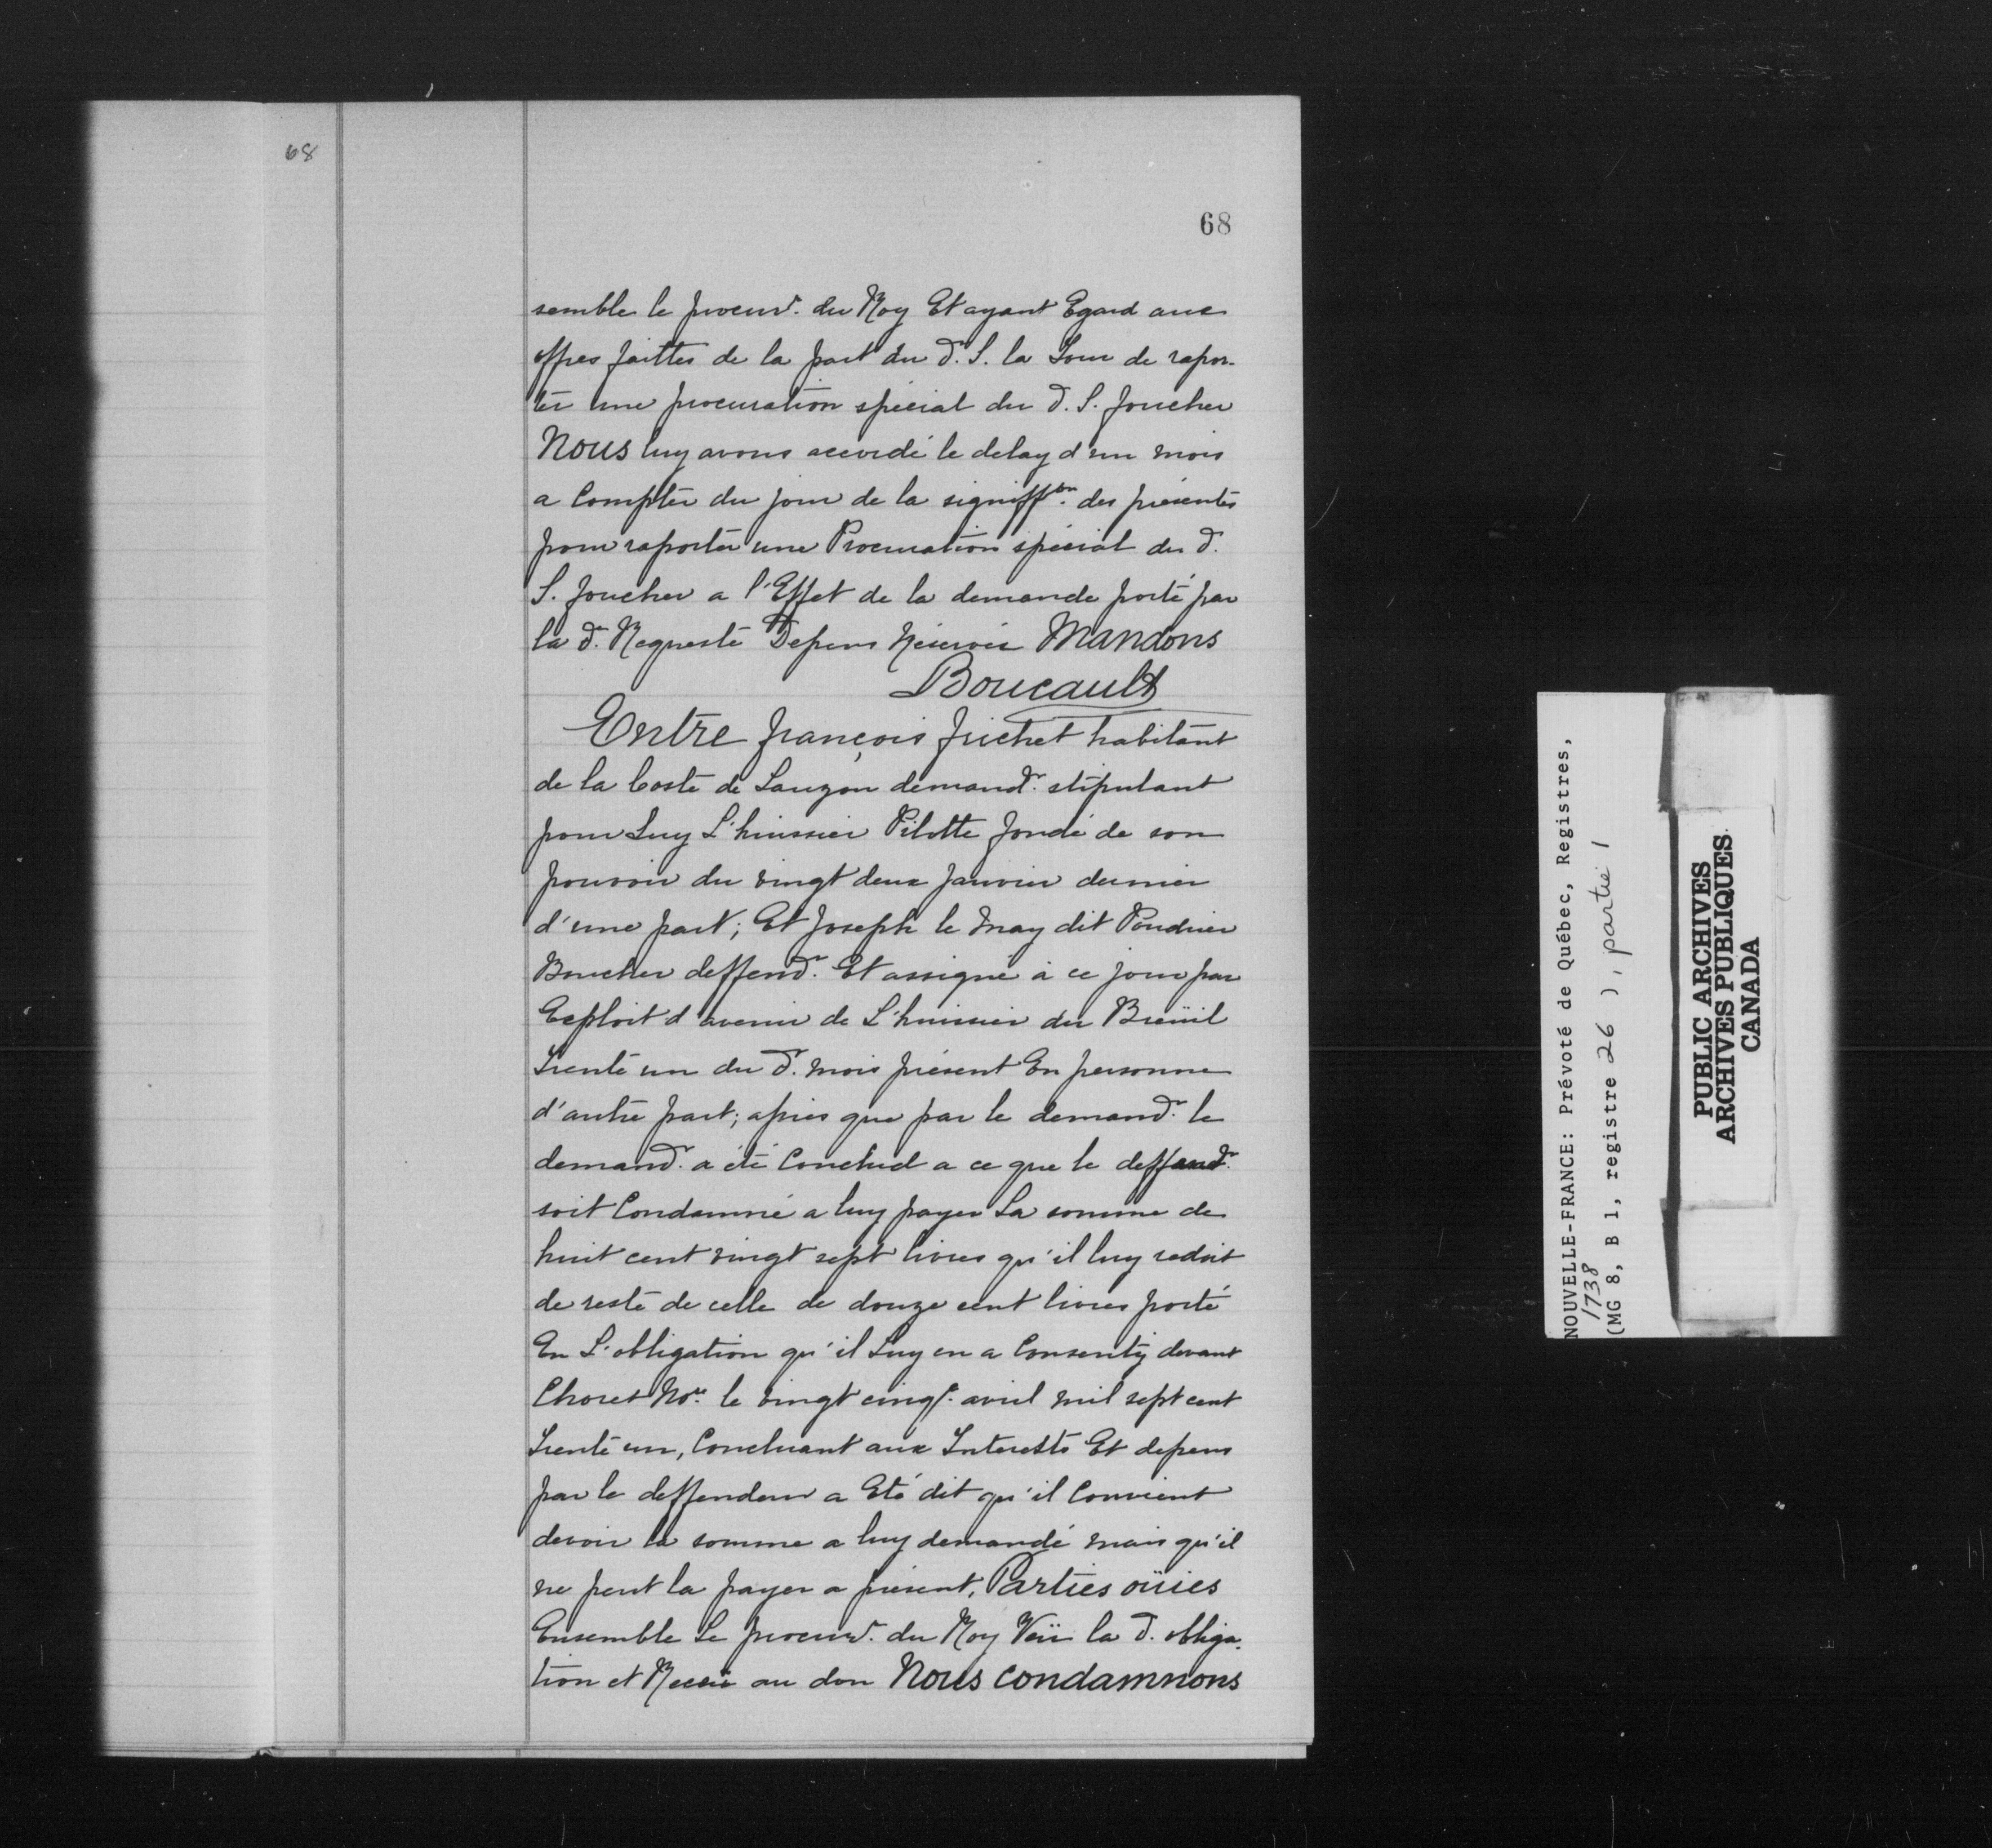 68
68
semble le procur. du Roy Et ayant Egard aux
offres faittes de la part du d. S. la Tour de rapor-
ter une procuration spécial du d. S. foucher
Nous luy avons accordé le delay d'un mois
a Compter du jour de la signiffon. des présentes
pour raporter une Procuration spécial du d.
S. foucher a l'Effet de la demande porté par
la de. Requeste Depens Réservés Mandons
Boucault
Entre françois frichet habitant
de la Coste de Lauzon demandr. stipulant
pour Luy L'huissier Pilotte fondé de son
pouvoir du vingt deux janvier dernier
d'une part; Et Joseph le may dit Poudrier
Boucher deffendr. Et assigné à ce jour par
Exploit d'avenir de L'huissier du Breüil
Trente un du dr. mois présent En personne
d'autre part; après que par le demandr. le
demandr. a été Conclud a ce que le deffendr.
soit Condamné a luy payer La somme de
huit cent vingt sept livres qu'il luy redoit
de reste de celle de douze cent livres porté
En L'obligation qu'il Luy en a Consenty devant
Choret Nore. le vingt cinq avril mil sept cent
Trente un, Concluant aux Interests Et depens
par le deffendeur a Eté dit qu'il Convient
devoir la somme a luy demandé mais qu'il
ne peut la payer a présent, Parties oüies
Ensemble Le procur. du Roy Veü la d. obliga-
tion et au don Nous condamnons
NOUVELLE-FRANCE: Prévoté de Québec, Registres,
1738
(MG 8, B 1, registre 26 ), partie 1
PUBLIC ARCHIVES
ARCHIVES PUBLIQUES
CANADA